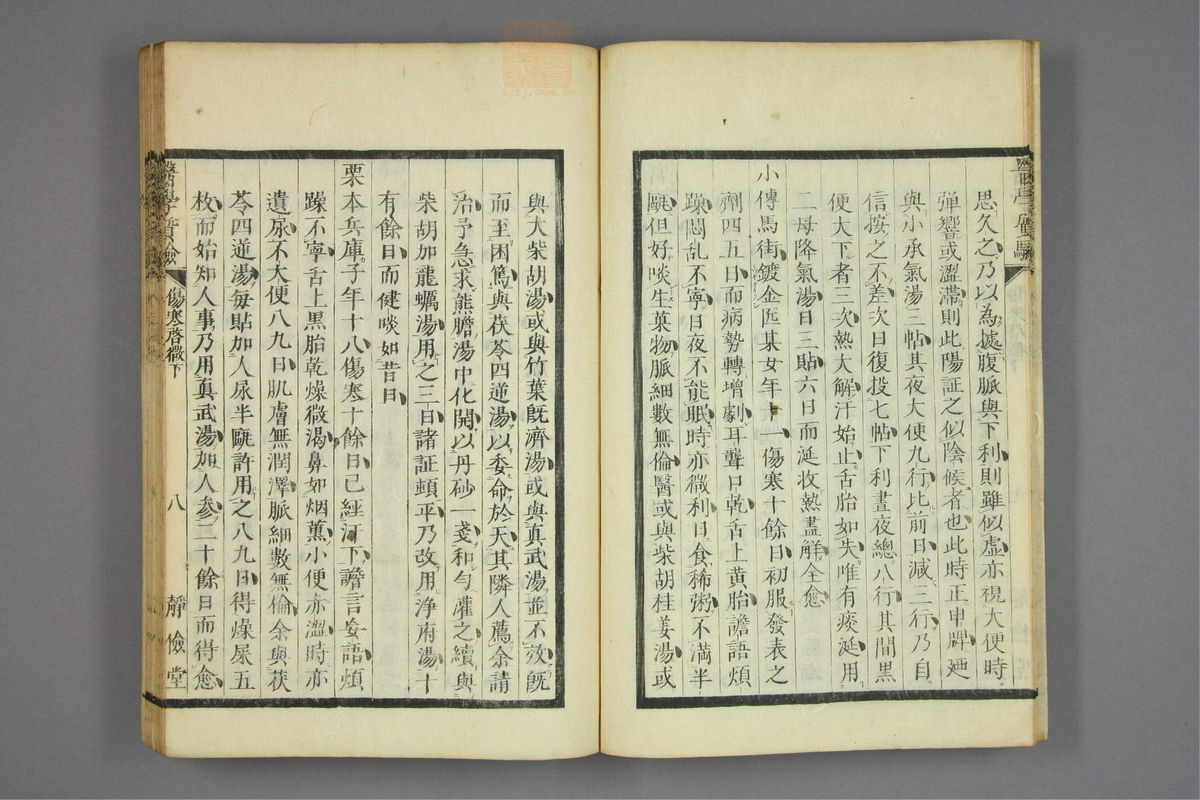 思久之乃以為據腹脈與下利則雖似虛亦視大便時
彈響或澀滯則此陽証之似陰候者也此時正申牌廼
與小承氣湯三帖其夜大便九行比前日減三行乃自
信按之不差次日復投七帖下利晝夜總八行其間黑
便大下者三次熱大解汗始止舌胎如失唯有痰涎用
二母降氣湯日三貼六日而涎收熱盡解全愈
小傳馬街鍍金匠某女年十一傷寒十餘日初服發表之
劑四五日而病勢轉增劇耳聾口乾舌上黃胎譫語煩
躁悶亂不寧日夜不能眠時亦微利日食稀粥不滿半
甌但好啖生菓物脈細數無倫醫或與柴胡桂姜湯或
與大柴胡湯或與竹葉旣濟湯或與真武湯並不效旣
而至困篤與茯苓四逆湯以委命於天其隣人薦余請
治予急求熊膽湯中化開以丹砂一戔和勻灌之續與
柴胡加龍蠣湯用之三日諸証頓平乃改用淨府湯十
有餘日而健啖如昔日
栗本兵庫子年十八傷寒十餘日已經汗下譫言妄語煩
躁不寧舌上黑胎乾燥微渴鼻如烟薰小便亦澀時亦
遺尿不大便八九日肌膚無潤澤脈細數無倫余與茯
苓四逆湯每貼加人尿半甌許用之八九日得燥屎五
枚而始知人事乃用真武湯加人參二十餘日而得愈
傷寒啓微下
八
靜儉堂